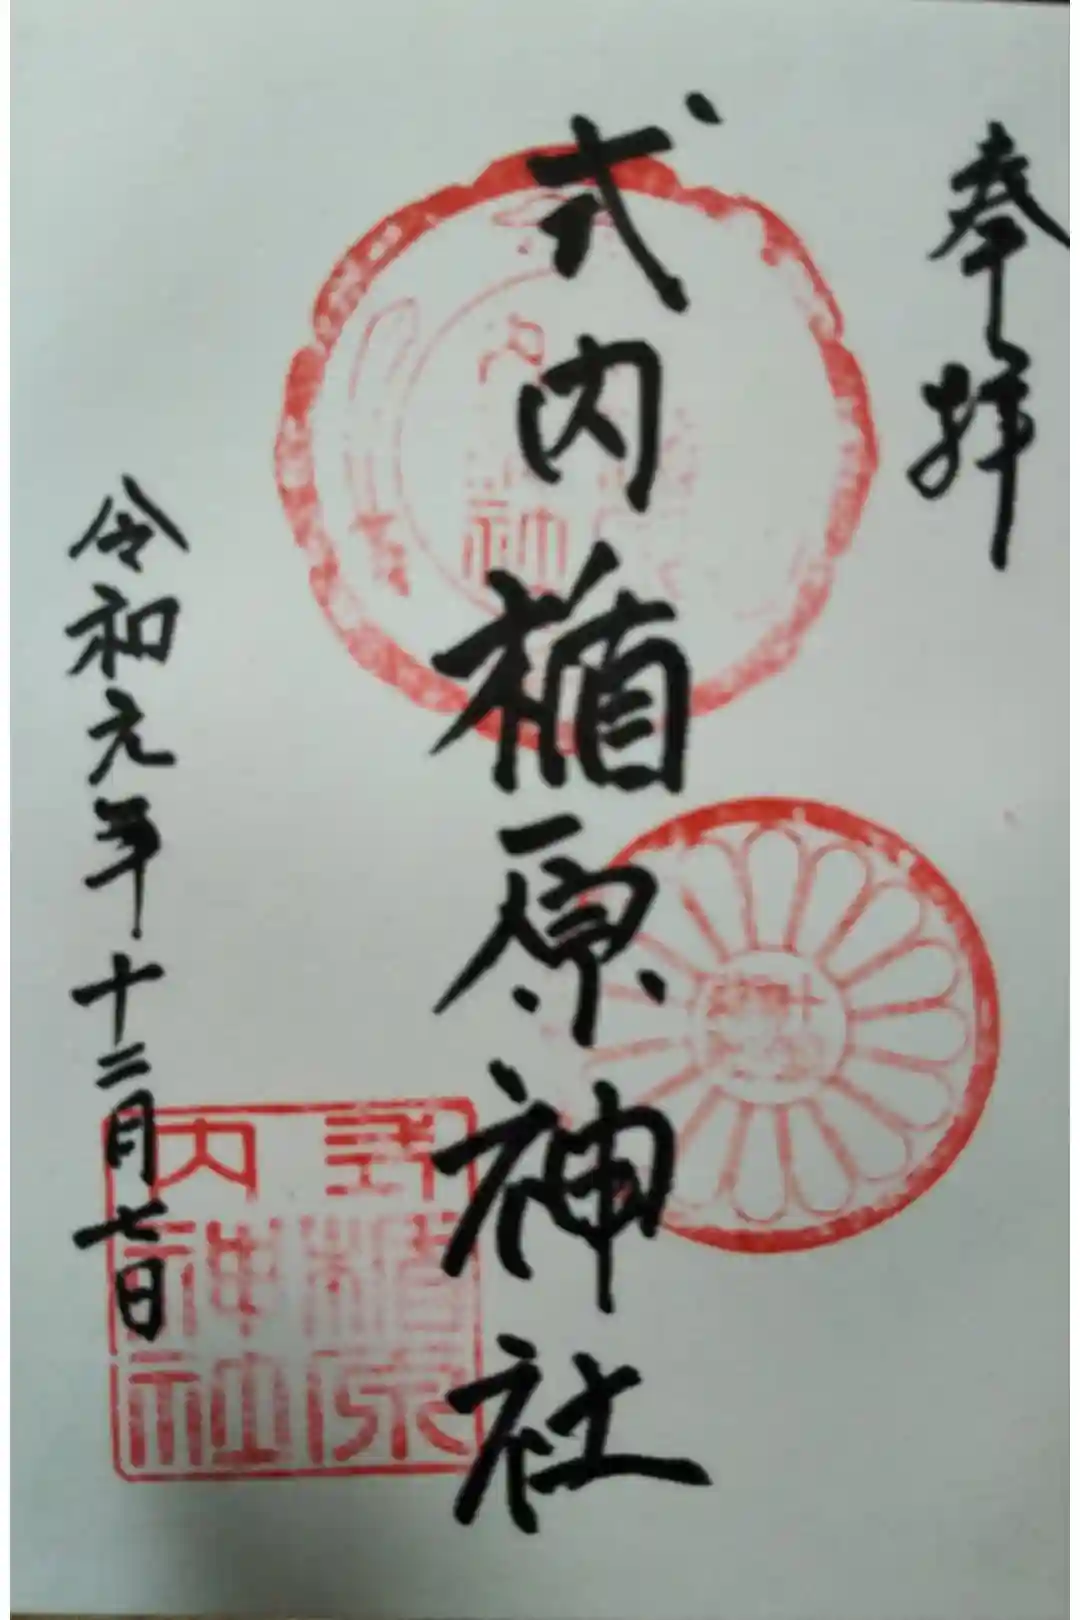 奉拝
式内楯原神社
令和元年十二月七日
式内
楯原
神社